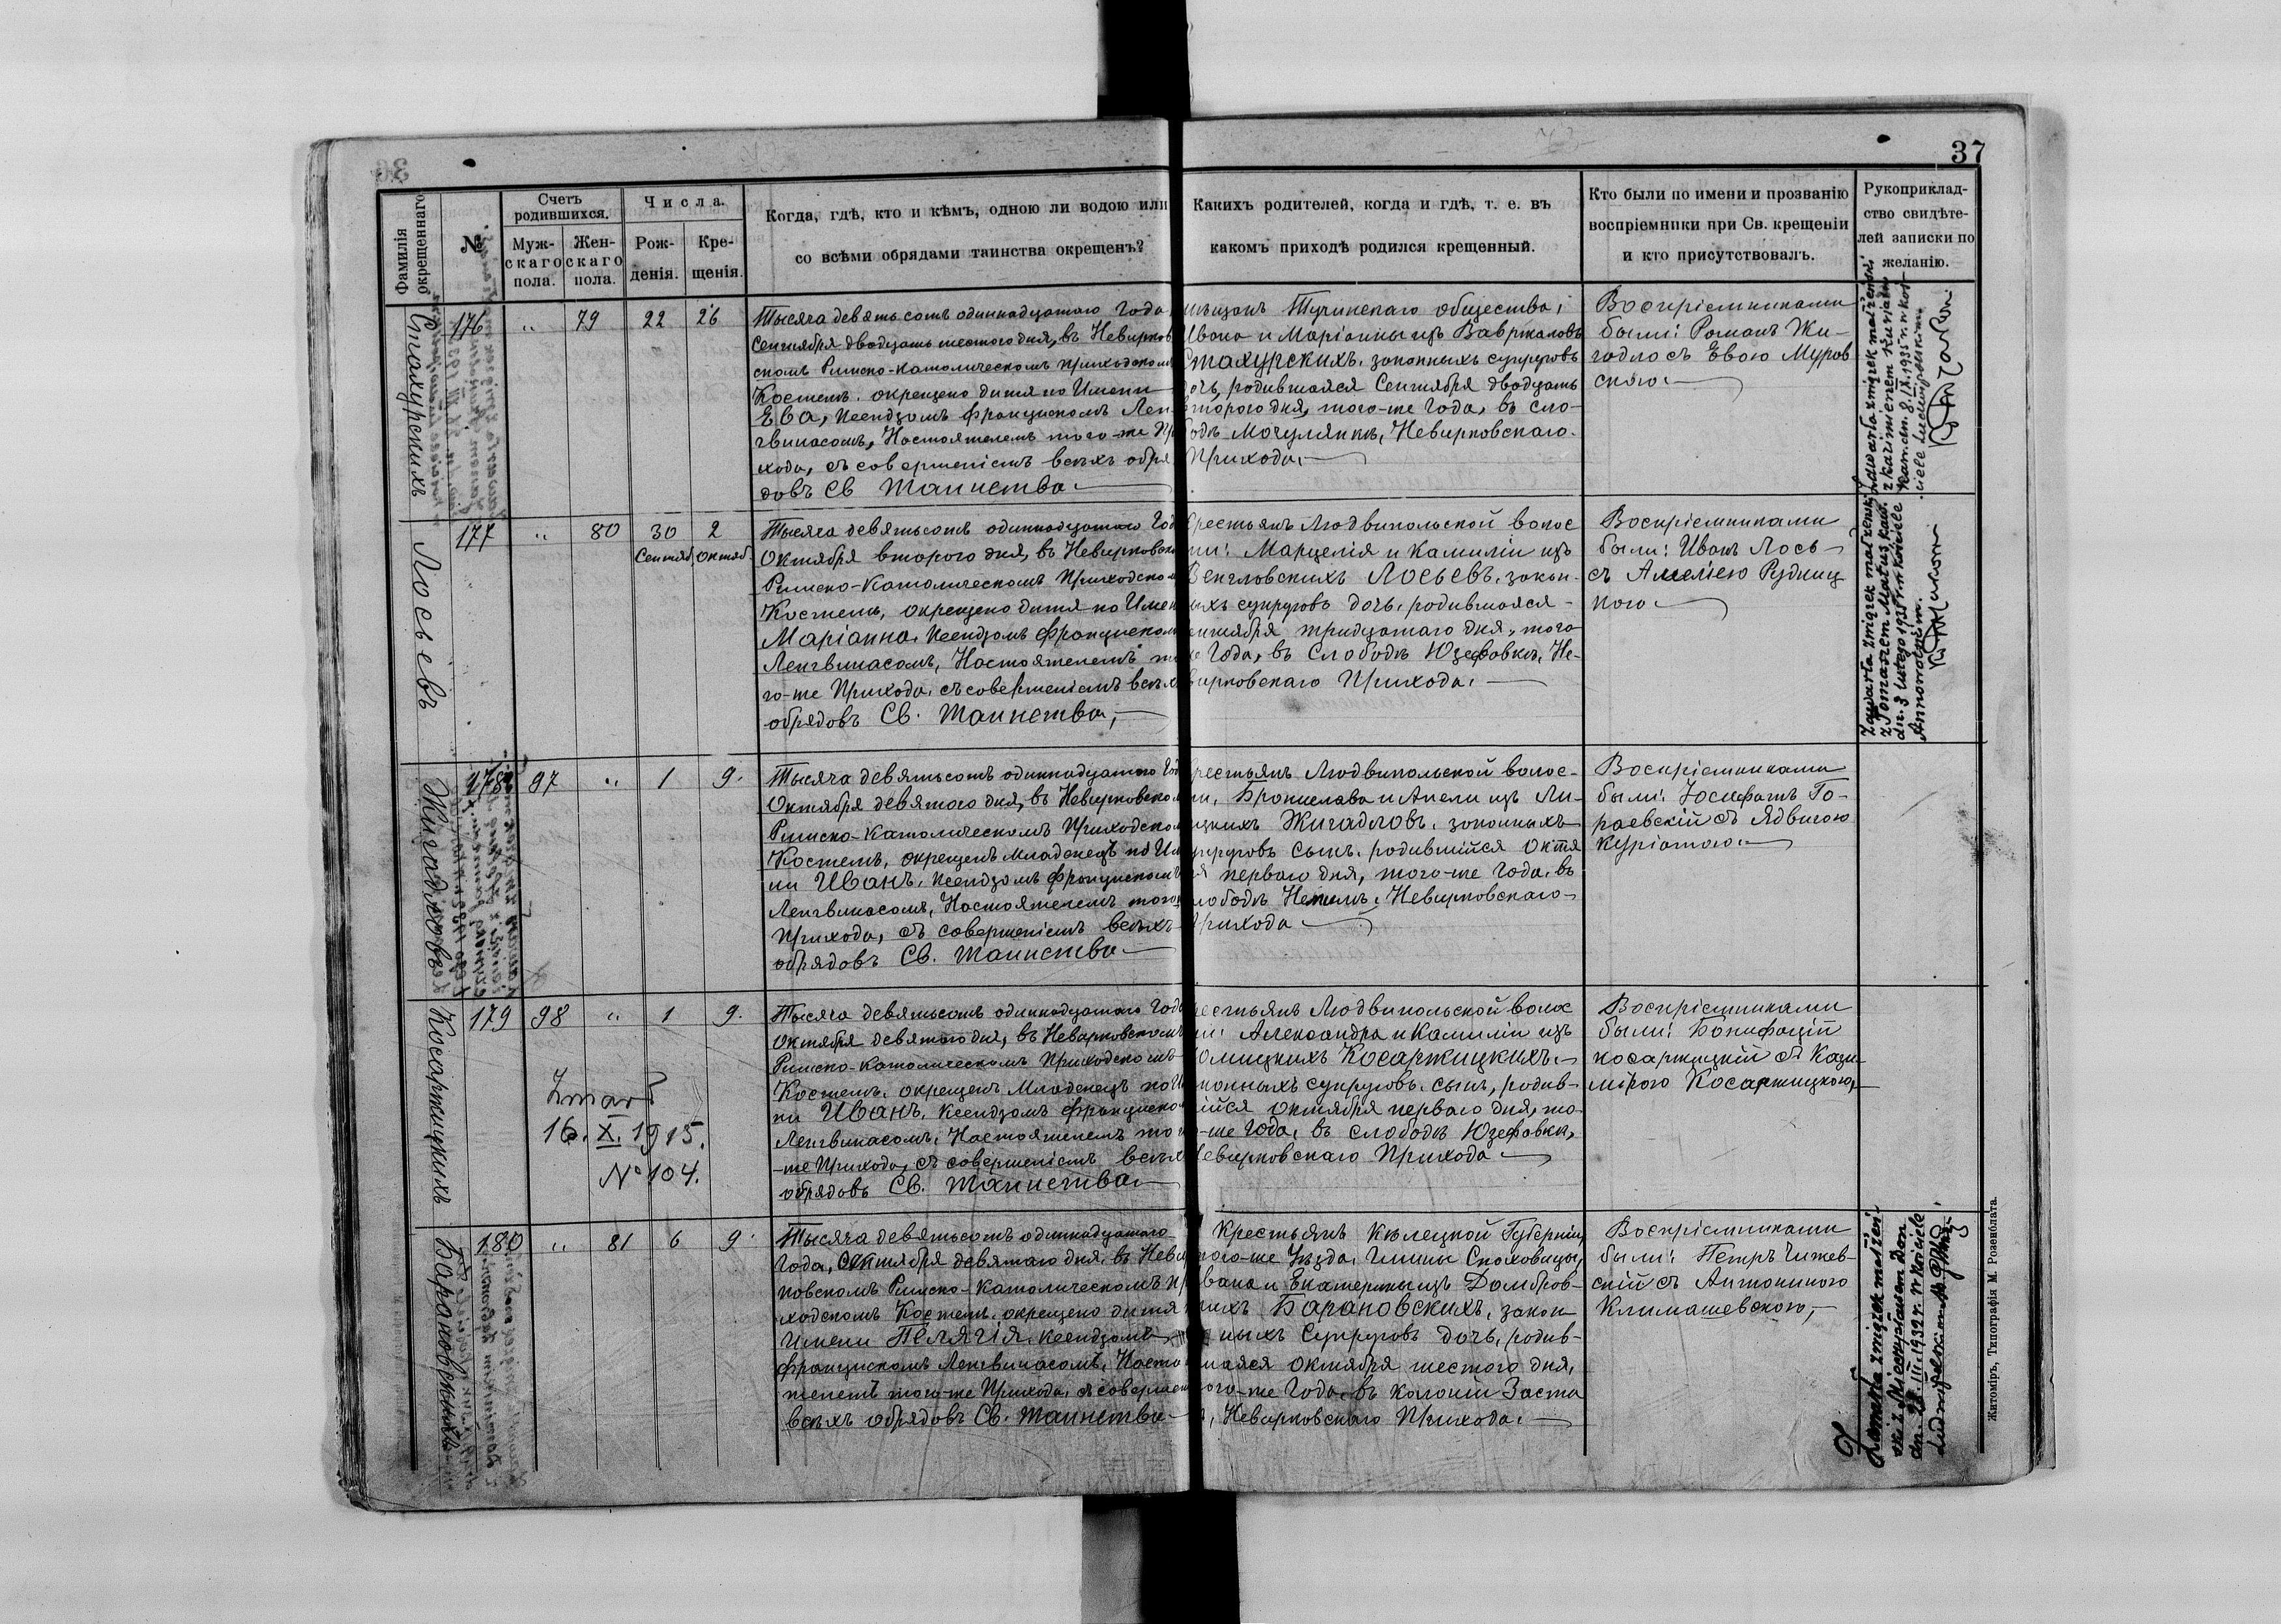 37
Фамилія окрещеннаго
№
Счетъ родившихся.
Муж-
скаго
пола.
Жен-
скаго
пола.
Числа.
Рож-
денія.
Кре-
щенія.
Когда, гдѣ, кто и кѣмъ, одною ли водою или
со всѣми обрядами таинства окрещенъ?
Какихъ родителей, когда и гдѣ, т. е. въ
какомъ приходѣ родился крещенный.
Кто были по имени и прозванію
воспріемники при Св. крещеніи
и кто присутствовалъ.
Рукоприклад-
ство свидѣте-
лей записки по
желанію.
Стахурскихъ
176 „ 79 22 26
Тысяча девятьсотъ одиннадцатаго Года
Сентября двадцать шестого дня, въ Невирков
скомъ Римско-Католическомъ Приходском
Костелѣ, окрещено дитя по Имени
Ева, Ксендзомъ Францискомъ Лен-
гвинасомъ, Настоятелемъ того-же При
хода, съ совершеніемъ всѣхъ обря
довъ Св Таинства.
мѣщанъ Тучинскаго общества,
Ивана и Маріанны изъ Вавржаловъ
Стахурскихъ, законныхъ супруговъ
дочь, родившаяся Сентября двадцать
второго дня, того-же Года, въ сло-
бодѣ Мочулянкѣ, Невирковскаго
Прихода.
Воспріемниками
были: Романъ Жи-
гадло съ Евою Муров
скою.
Zawarła związek małżeński
z Kazimierzem
kaw. dn. 8.IX.1935 r. w koś-
ciele Ludwipolskim
Лосьевъ
177 „ 80 30 2
Сентяб. Октяб.
Тысяча девятьсотъ одиннадцатаго Год
Октября второго дня, въ Невирковско
Римско-Католическомъ Приходском
Костелѣ, окрещено дитя по Имен
Маріанна, Ксендзомъ Францискомъ
Ленгвинасомъ, Настоятелемъ то
го-же Прихода, съ совершеніемъ всѣхъ
обрядовъ Св. Таинства,
Крестьянъ Людвипольской волос
ти: Марцелія и Камиліи изъ
Венгловскихъ Лосьевъ, закон-
ныхъ супруговъ дочь, родившаяся
сентября тридцатаго дня, того
же Года, въ Слободѣ Юзефовкѣ, Не-
вирковскаго Прихода.
Воспріемниками
были: Иванъ Лось
съ Амеліею Рудниц
кою.
Zawarła związek małżeński
z Tomaszem Matus kaw.
dn. 3 lutego 1935 r. w kościele
Annowolskim.
Жигадловъ
178 97 „ 1 9.
Тысяча девятьсотъ одиннадцатаго Год
Октября девятого дня, въ Невирковском
Римско-Католическомъ Приходском
Костелѣ, окрещенъ младенецъ по Им
ни Иванъ, Ксендзомъ Францискомъ
Ленгвинасомъ, Настоятелемъ того
Прихода, съ совершеніемъ всѣхъ
обрядовъ Св. Таинства
Крестьянъ Людвипольской волос-
ти, Бронислава и Анели изъ Ли-
пицкихъ Жигадловъ, законныхъ
супруговъ сынъ, родившійся Октя
бря перваго дня, того-же Года, въ
слободѣ Невирковскаго
Прихода
Воспріемниками
были: Іосифатъ Го-
раевскій съ Ядвигою
Куріатою.
Косаржицкихъ
179 98 „ 1 9.
Zmarł
16. X. 1915.
№ 104.
Тысяча девятьсотъ одиннадцатаго Года
Октября девятого дня, въ Невирковскомъ
Римско-Католическомъ Приходскомъ
Костелѣ, окрещенъ Младенецъ по И
ни Иванъ, Ксендзомъ Франциском
Ленгвинасомъ, Настоятелемъ того
-же Прихода, съ совершеніемъ всѣхъ
обрядовъ Св. Таинства
Крестьянъ Людвипольской волос
ти: Александра и Камиліи изъ
Косаржицкихъ,
законныхъ супруговъ, сынъ, родив-
шійся октября перваго дня, то
го-же Года, въ слободѣ Юзефовкѣ,
Невирковскаго Прихода
Воспріемниками
были: Бонифацій
Косаржицкій съ Кази
мірою Косаржицкою,
Барановскихъ
180 „ 81 6 9.
Тысяча девятьсотъ одиннадцатаго
Года, Октября девятаго дня, въ Невир
ковскомъ Римско-Католическомъ При
ходскомъ Костелѣ, окрещено дитя
Имени Пелагія, Ксендзомъ
Францискомъ Ленгвинасомъ, Насто
телемъ того-же Прихода, съ совершен
всѣхъ обрядовъ Св. Таинства
Крестьянъ Кѣлецкой Губерніи,
того-же Уѣзда, Гмины
Ивана и Екатерины изъ Домбров-
скихъ Барановскихъ, закон
ныхъ Супруговъ дочь, родив-
шаяся Октября шестого дня,
того-же Года, въ колоніи Заста
Невирковскаго Прихода.
Воспріемниками
были: Петръ Чижев-
скій съ Антониною
Климашевскою,
związek małżeń-
ski z Mieczysławem
1932 r. w kościele
Житоміръ, Типографія М. Розенблата.